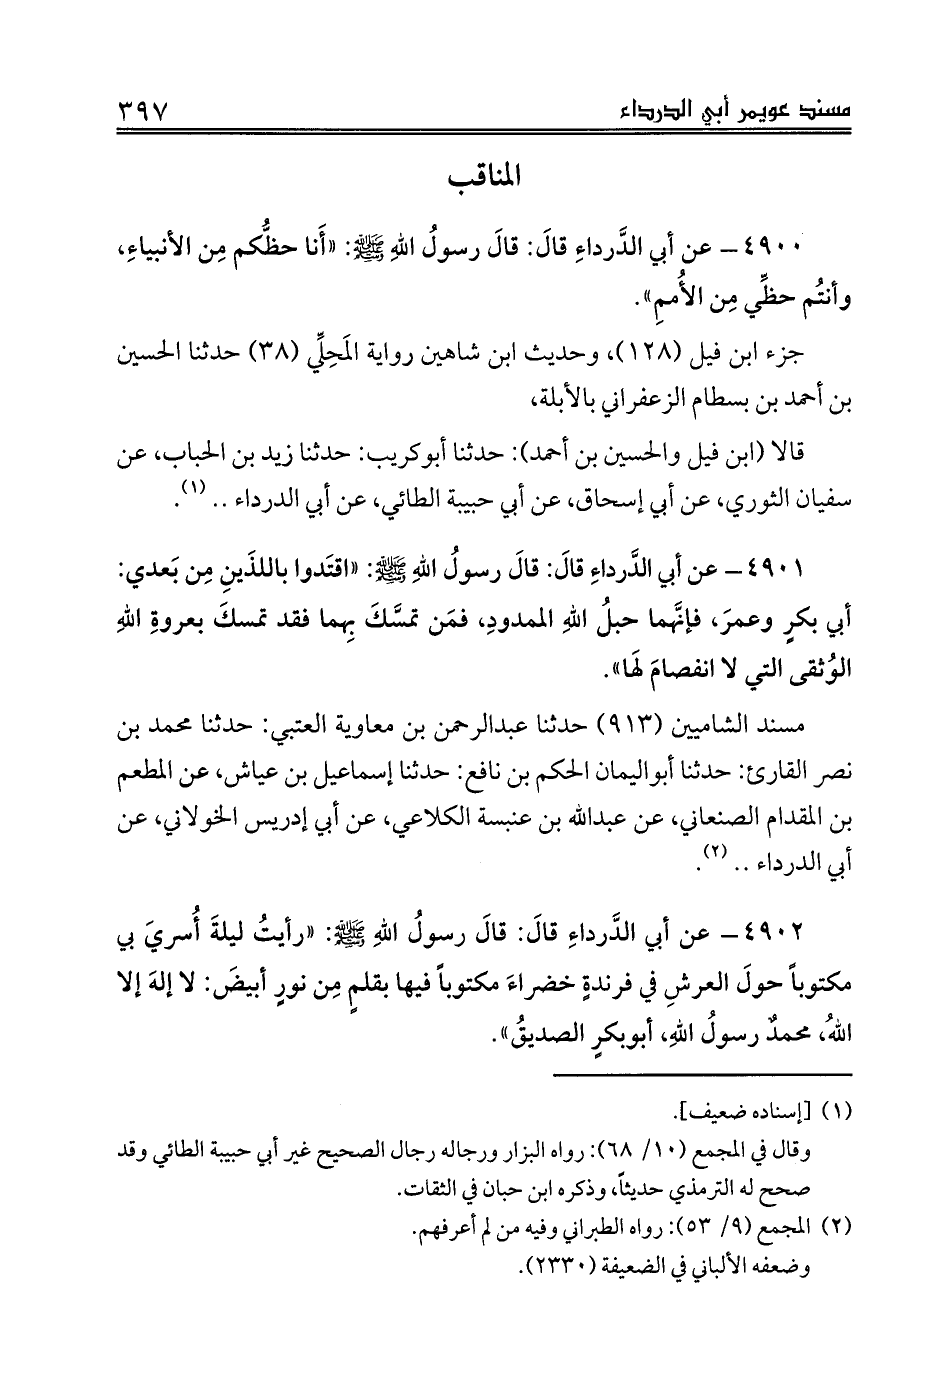 مسند عويمر أبي الدرداء ٣٩٧
المناقب
٤٩٠٠ – عن أبي الدَّرداءِ قالَ: قالَ رسولُ اللهِ ﷺ: «أَنا حظُّكم مِن الأنبياءِ،
وأنتُم حظِّي مِن الأُممِ».
جزء ابن فيل (١٢٨)، وحديث ابن شاهين رواية المَحِلِّي (٣٨) حدثنا الحسين
بن أحمد بن بسطام الزعفراني بالأبلة،
قالا (ابن فيل والحسين بن أحمد): حدثنا أبوكريب: حدثنا زيد بن الحباب، عن
سفيان الثوري، عن أبي إسحاق، عن أبي حبيبة الطائي، عن أبي الدرداء .. (١).
٤٩٠١ – عن أبي الدَّرداءِ قالَ: قالَ رسولُ اللهِ ﷺ: «اقتَدوا باللذَينِ مِن بَعدي:
أبي بكرٍ وعمرَ، فإنَّهما حبلُ اللهِ الممدودِ، فمَن تمسَّكَ بِهما فقد تمسكَ بعروةِ اللهِ
الوُثقى التي لا انفصامَ لهَا».
مسند الشاميين (٩١٣) حدثنا عبدالرحمن بن معاوية العتبي: حدثنا محمد بن
نصر القارئ: حدثنا أبواليمان الحكم بن نافع: حدثنا إسماعيل بن عياش، عن المطعم
بن المقدام الصنعاني، عن عبدالله بن عنبسة الكلاعي، عن أبي إدريس الخولاني، عن
أبي الدرداء .. (٢).
٤٩٠٢ – عن أبي الدَّرداءِ قالَ: قالَ رسولُ اللهِ ﷺ: «رأيتُ ليلةَ أُسريَ بي
مكتوباً حولَ العرشِ في فرندةٍ خضراءَ مكتوباً فيها بقلمٍ مِن نورٍ أبيضَ: لا إلهَ إلا
اللهُ، محمدٌ رسولُ اللهِ، أبوبكرٍ الصديقُ».
(١) [إسناده ضعيف].
وقال في المجمع (١٠/ ٦٨): رواه البزار ورجاله رجال الصحيح غير أبي حبيبة الطائي وقد
صحح له الترمذي حديثاً، وذكره ابن حبان في الثقات.
(٢) المجمع (٩/ ٥٣): رواه الطبراني وفيه من لم أعرفهم.
وضعفه الألباني في الضعيفة (٢٣٣٠).